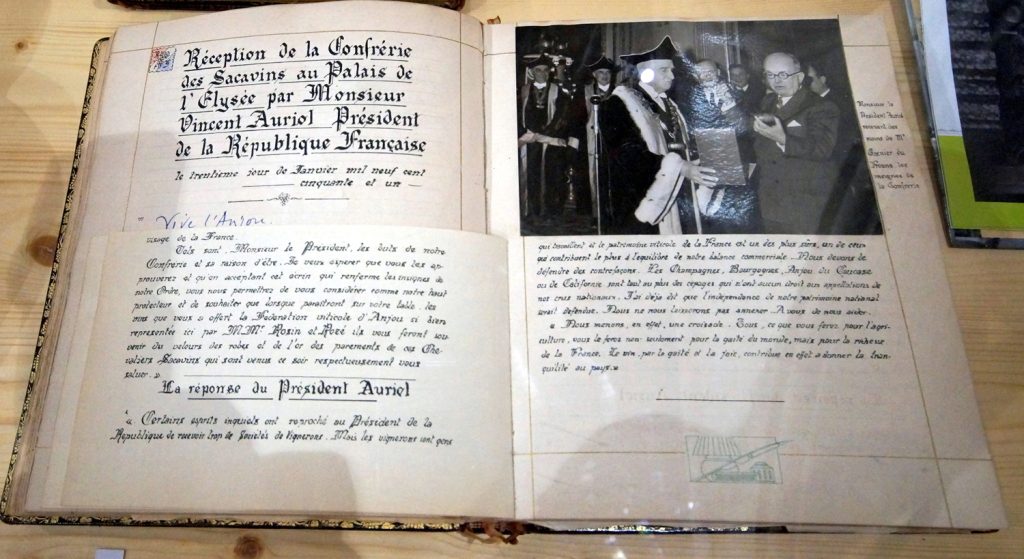 Réception de la Confrérie
des Sacavins au Palais de
l'Élysée par Monsieur
Vincent Auriol Président
de la République Française
le trentième jour de Janvier mil neuf cent
cinquante et un
" Vive l'Anjou
visage de la France.
Tels sont, Monsieur le Président, les buts de notre
Confrérie et sa raison d'être. Je veux espérer que vous les ap-
prouverez et qu'en acceptant cet écrin qui renferme les insignes de
notre Ordre, vous nous permettrez de vous considérer comme notre haut
protecteur et de souhaiter que lorsque paraîtront sur votre table les
vins que vous a offert la Fédération viticole d'Anjou si bien
représentée ici par M.Mrs Rosin et Rozé ils vous feront sou-
venir du velours des robes et de l'or des parements de ces Che-
valiers Sacavins qui sont venus ce soir respectueusement vous
saluer. ».
La réponse du Président Auriol
« Certains esprits inquiets ont reproché au Président de la
République de recevoir trop de Sociétés de Vignerons. Mais les vignerons sont gens
Monsieur le
Président Auriol
recevant des
mains de Mr
les
insignes de
la Confrérie
qui travaillent et le patrimoine viticole de la France est un des plus sûrs, un de ceux
qui contribuent le plus à l'équilibre de notre balance commerciale. Nous devons le
défendre des contrefaçons. Les Champagnes, Bourgognes, Anjou du Caucase
ou de Californie sont tout au plus des cépages qui n'ont aucun droit aux appellations de
nos crus nationaux. J'ai déjà dit que l'indépendance de notre patrimoine national
serait défendue. Nous ne nous laisserons pas annexer. A vous de nous aider.
« Nous menons, en effet, une croisade. Tout, ce que vous ferez pour l'agri-
culture, vous le ferez non seulement pour la gaîté du monde, mais pour la richesse
de la France. Le vin, par la gaîté et la joie, contribue en effet à donner la tran-
quillité au pays. »